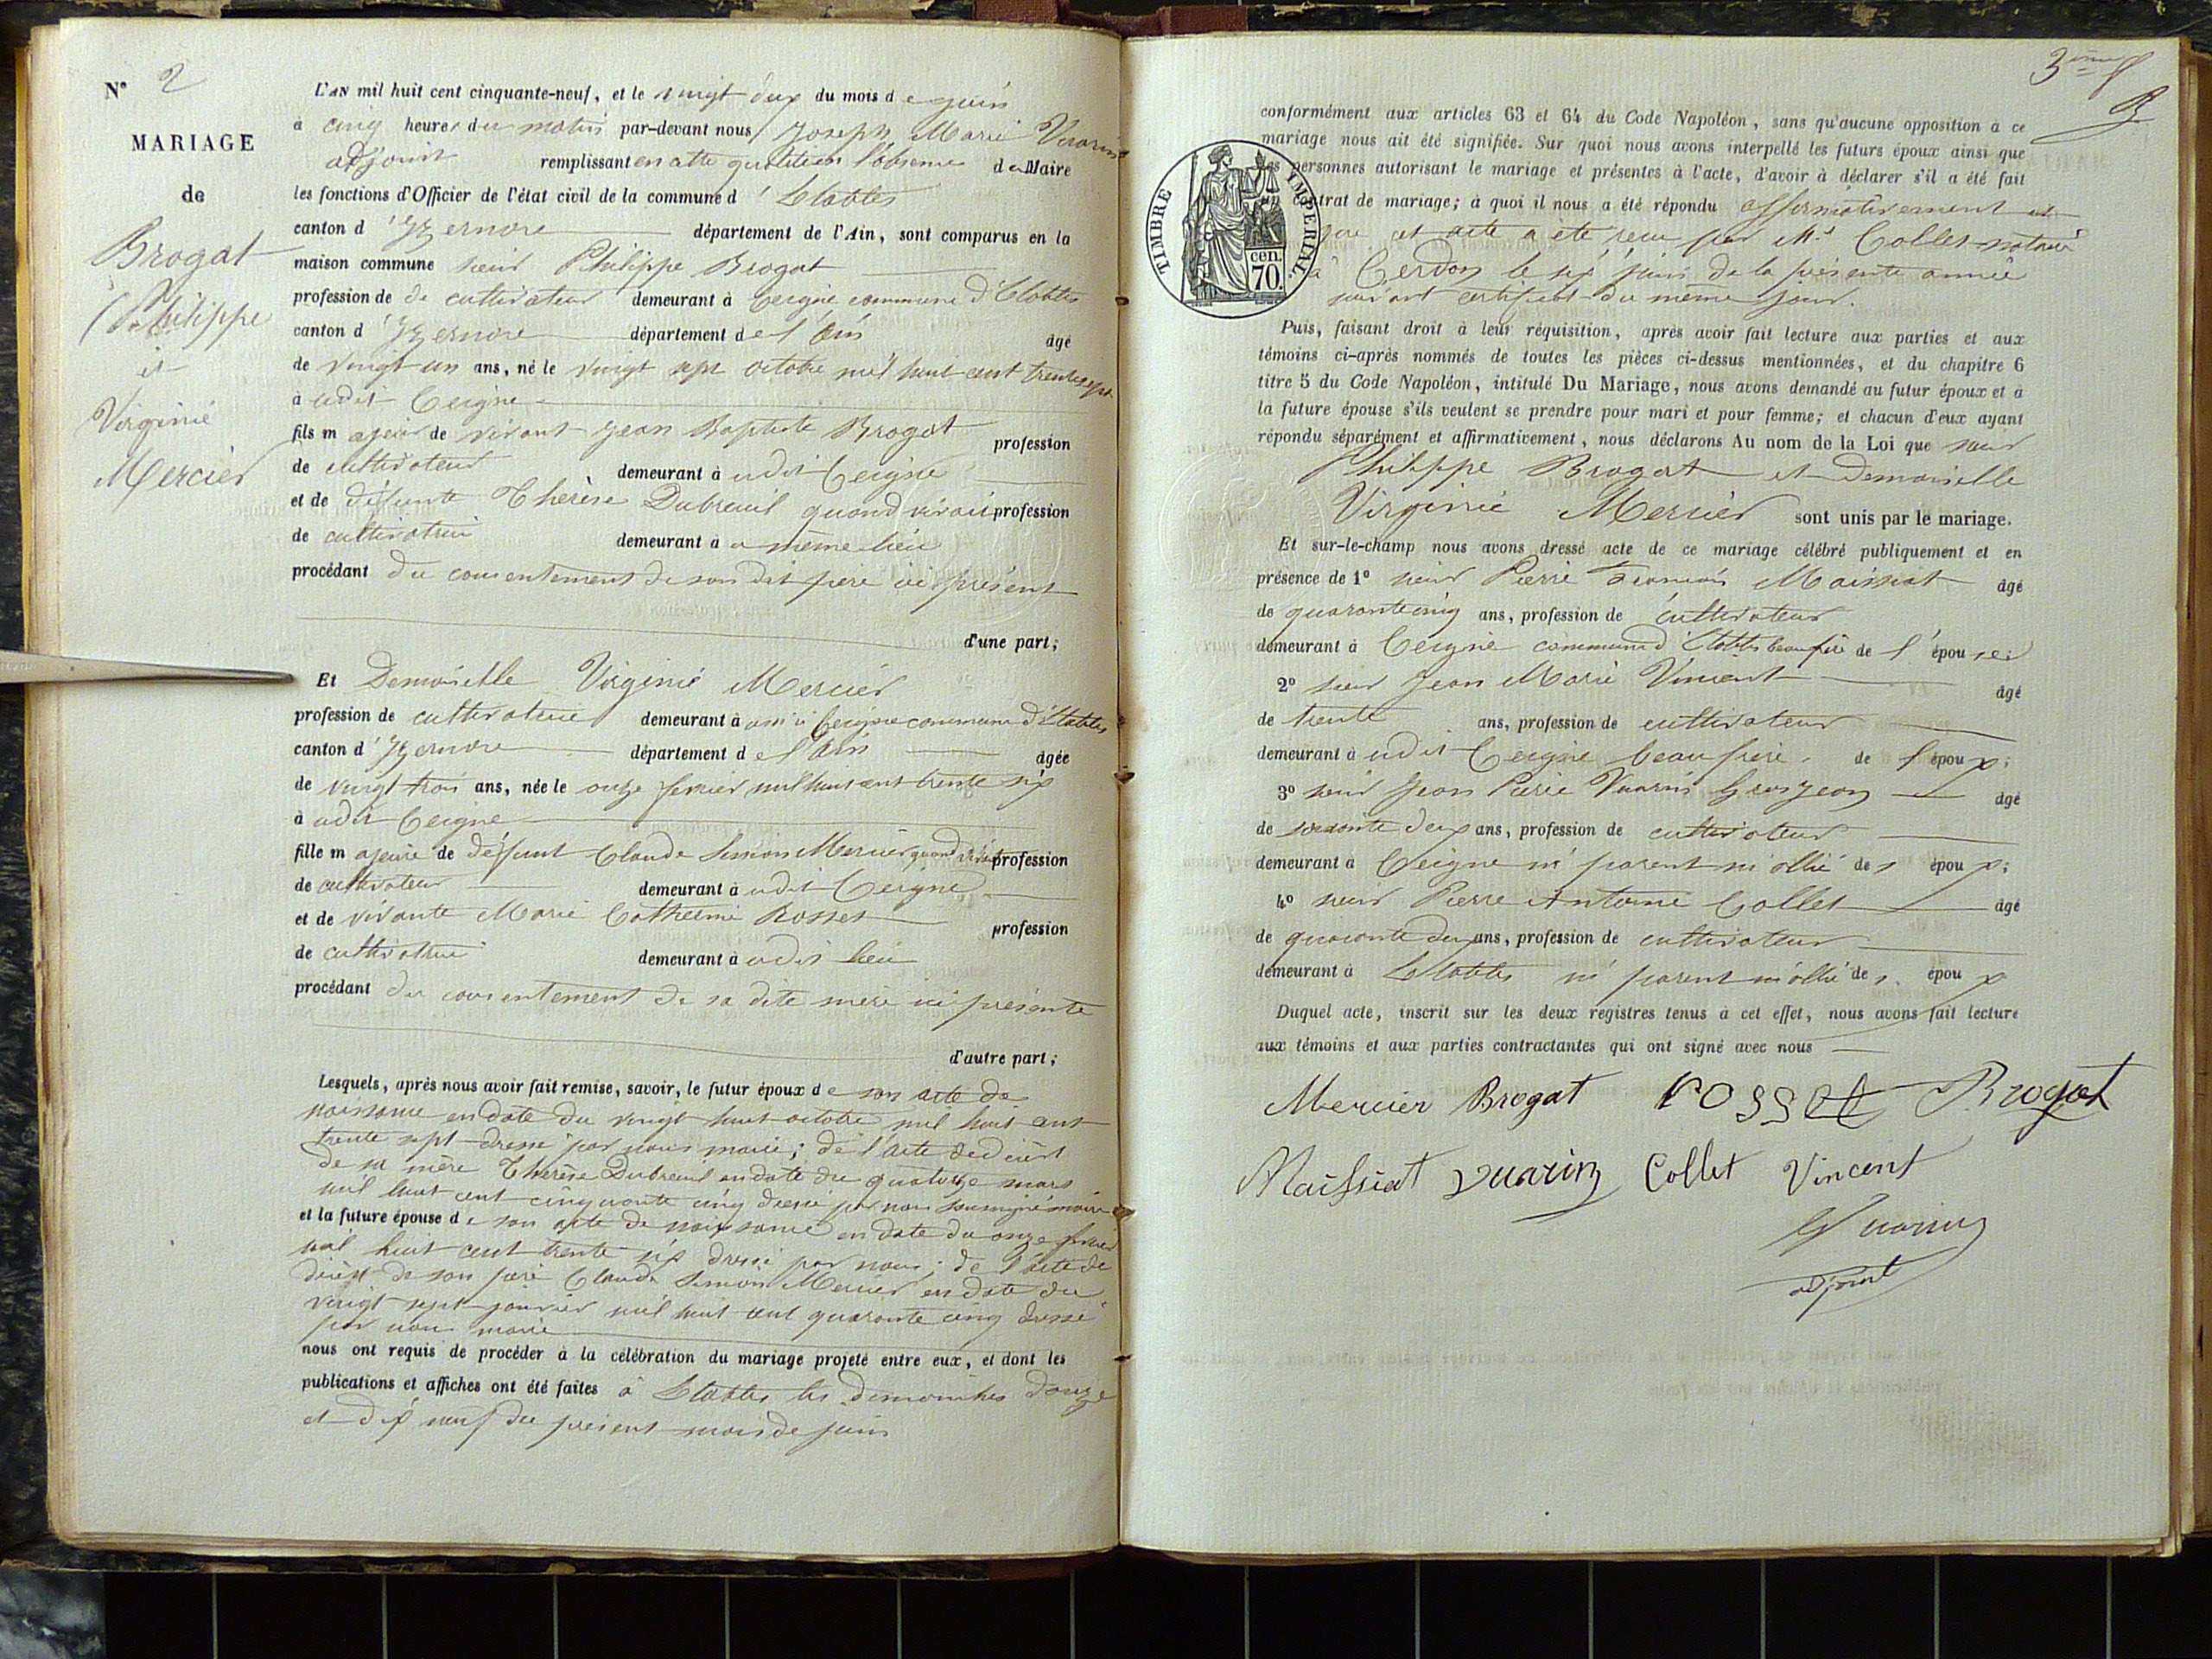 N° 2
MARIAGE
de
Brogat
Philippe
et
Virginie
Mercier
L'AN mil huit cent cinquante-neuf, et le vingt deux du mois de juin
à cinq heures du matin par-devant nous Joseph Marie Vuarin
adjoint remplissant en cette qualité en l'absence du Maire
les fonctions d'Officier de l'état civil de la commune d'Etables
canton d'Izernore département de l'Ain, sont comparus en la
maison commune sieur Philippe Brogat
profession de de cultivateur demeurant à Ceigne commune d'Etables
canton d'Izernore département de l'Ain âgé
de vingt un ans, né le vingt sept octobre mil huit cent trente sept
à udit Ceigne
fils majeur de vivant Jean Baptiste Brogat profession
de cultivateur demeurant à udit Ceigne
et de défunte Thérèse Dubreuil quand vivait profession
de cultivatrice demeurant à u même lieu
procédant du consentement de son dit père ici présent
d'une part;
Et Demoiselle Virginie Mercier
profession de cultivatrice demeurant à aussi Ceigne commune d'Etables
canton d'Izernore département de l'Ain âgée
de vingt trois ans, née le onze février mil huit cent trente six
à udit Ceigne
fille majeure de défunt Claude Simon Mercier quand vivait profession
de cultivateur demeurant à udit Ceigne
et de vivante Marie Catherine Rosset profession
de cultivatrice demeurant à udit lieu
procédant du consentement de sa dite mère ici présente
d'autre part;
Lesquels, après nous avoir fait remise, savoir, le futur époux de son acte de
naissance en date du vingt huit octobre mil huit cent
trente sept dressé par nous maire; de l'acte de décès
de sa mère Thérèse Dubreuil en date du quatorze mars
mil huit cent cinquante cinq dressé par nous soussigné maire
et la future épouse de son acte de naissance en date du onze février
mil huit cent trente six dressé par nous; de l'acte de
décès de son père Claude Simon Mercier en date du
vingt sept janvier mil huit cent quarante cinq dressé
par nous maire
nous ont requis de procéder à la célébration du mariage projeté entre eux, et dont les
publications et affiches ont été faites à Etables les dimanches douze
et dix neuf du présent mois de juin
3ème f
conformément aux articles 63 et 64 du Code Napoléon, sans qu'aucune opposition à ce
mariage nous ait été signifiée. Sur quoi nous avons interpellé les futurs époux ainsi que
les personnes autorisant le mariage et présentes à l'acte, d'avoir à déclarer s'il a été fait
contrat de mariage; à quoi il nous a été répondu affirmativement et
que cet acte a été reçu par Me Collet notaire
à Cerdon le six juin de la présente année
suivant certificat du même jour.
TIMBRE IMPERIAL.
cen.
70.
Puis, faisant droit à leur réquisition, après avoir fait lecture aux parties et aux
témoins ci-après nommés de toutes les pièces ci-dessus mentionnées, et du chapitre 6
titre 5 du Code Napoléon, intitulé Du Mariage, nous avons demandé au futur époux et à
la future épouse s'ils veulent se prendre pour mari et pour femme; et chacun d'eux ayant
répondu séparément et affirmativement, nous déclarons Au nom de la Loi que sieur
Philippe Brogat et Demoiselle
Virginie Mercier sont unis par le mariage.
Et sur-le-champ nous avons dressé acte de ce mariage célébré publiquement et en
présence de 1° sieur Pierre François Maissiat âgé
de quarante cinq ans, profession de cultivateur
demeurant à Ceigne commune d'Etables beau frère de l'épouse;
2° sieur Jean Marie Vincent âgé
de trente ans, profession de cultivateur
demeurant à udit Ceigne beau frère de l'époux;
3° sieur Jean Pierre Vuarin Grosjean âgé
de soixante deux ans, profession de cultivateur
demeurant à Ceigne ni parent ni allié des époux;
4° sieur Pierre Antoine Collet âgé
de quarante deux ans, profession de cultivateur
demeurant à Etables ni parent ni allié des époux
Duquel acte, inscrit sur les deux registres tenus à cet effet, nous avons fait lecture
aux témoins et aux parties contractantes qui ont signé avec nous
Mercier Brogat rosset Brogat
Maissiat vuarin Collet Vincent
Vuarin
adjoint